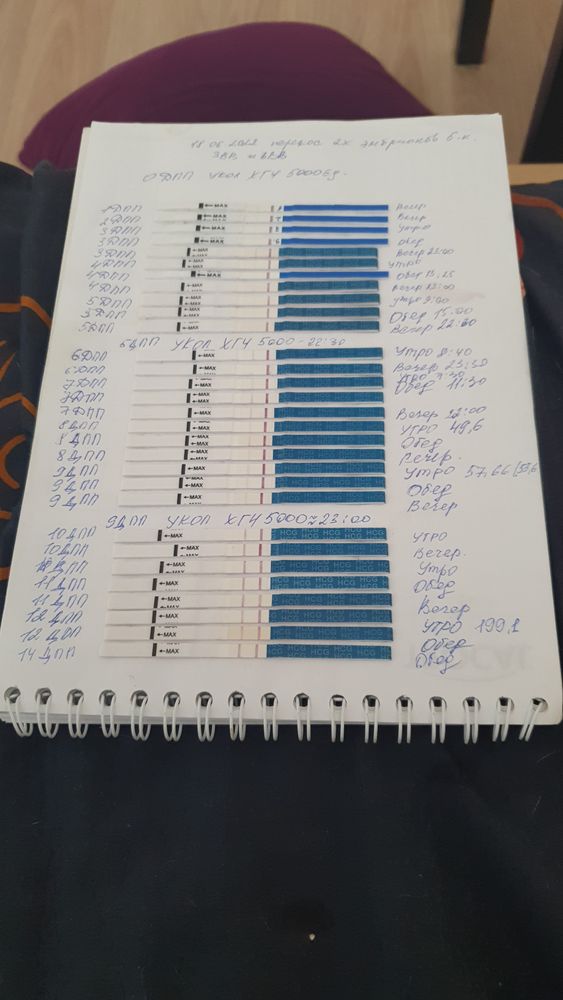 перенос 2х эмбрионов 5.к.
0ДПП укол ХГЧ 5000ед.
1ДПП MAX Вечер
2ДПП MAX Вечер
3ДПП MAX Утро
3ДПП MAX Обед
3ДПП MAX Вечер
4ДПП MAX утро
4ДПП MAX Обед
4ДПП MAX Вечер
5ДПП MAX утро 9:00
5ДПП MAX Обед 15:00
5ДПП MAX Вечер 22:00
6ДПП УКОЛ ХГЧ 5000-22:30
6ДПП MAX Утро 8:40
6ДПП MAX Вечер 23:30
7ДПП MAX Утро 7:30
7ДПП MAX Обед 11:30
7ДПП MAX Вечер 22:00
8ДПП MAX утро 49,6
8ДПП MAX Обед
8ДПП MAX Вечер.
9ДПП MAX Утро 57,66
9ДПП MAX Обед
9ДПП MAX Вечер
9ДПП УКОЛ ХГЧ 5000~23:00
10ДПП MAX HCG HCG HCG HCG утро
10ДПП MAX HCG HCG HCG HCG Вечер.
MAX HCG HCG HCG HCG Утро
11ДПП MAX HCG HCG HCG HCG Обед
11ДПП MAX HCG HCG HCG HCG Вечер
12ДПП MAX HCG HCG HCG HCG Утро 199,1
12ДПП MAX HCG HCG HCG HCG Обед
14ДПП MAX HCG HCG HCG HCG Обед